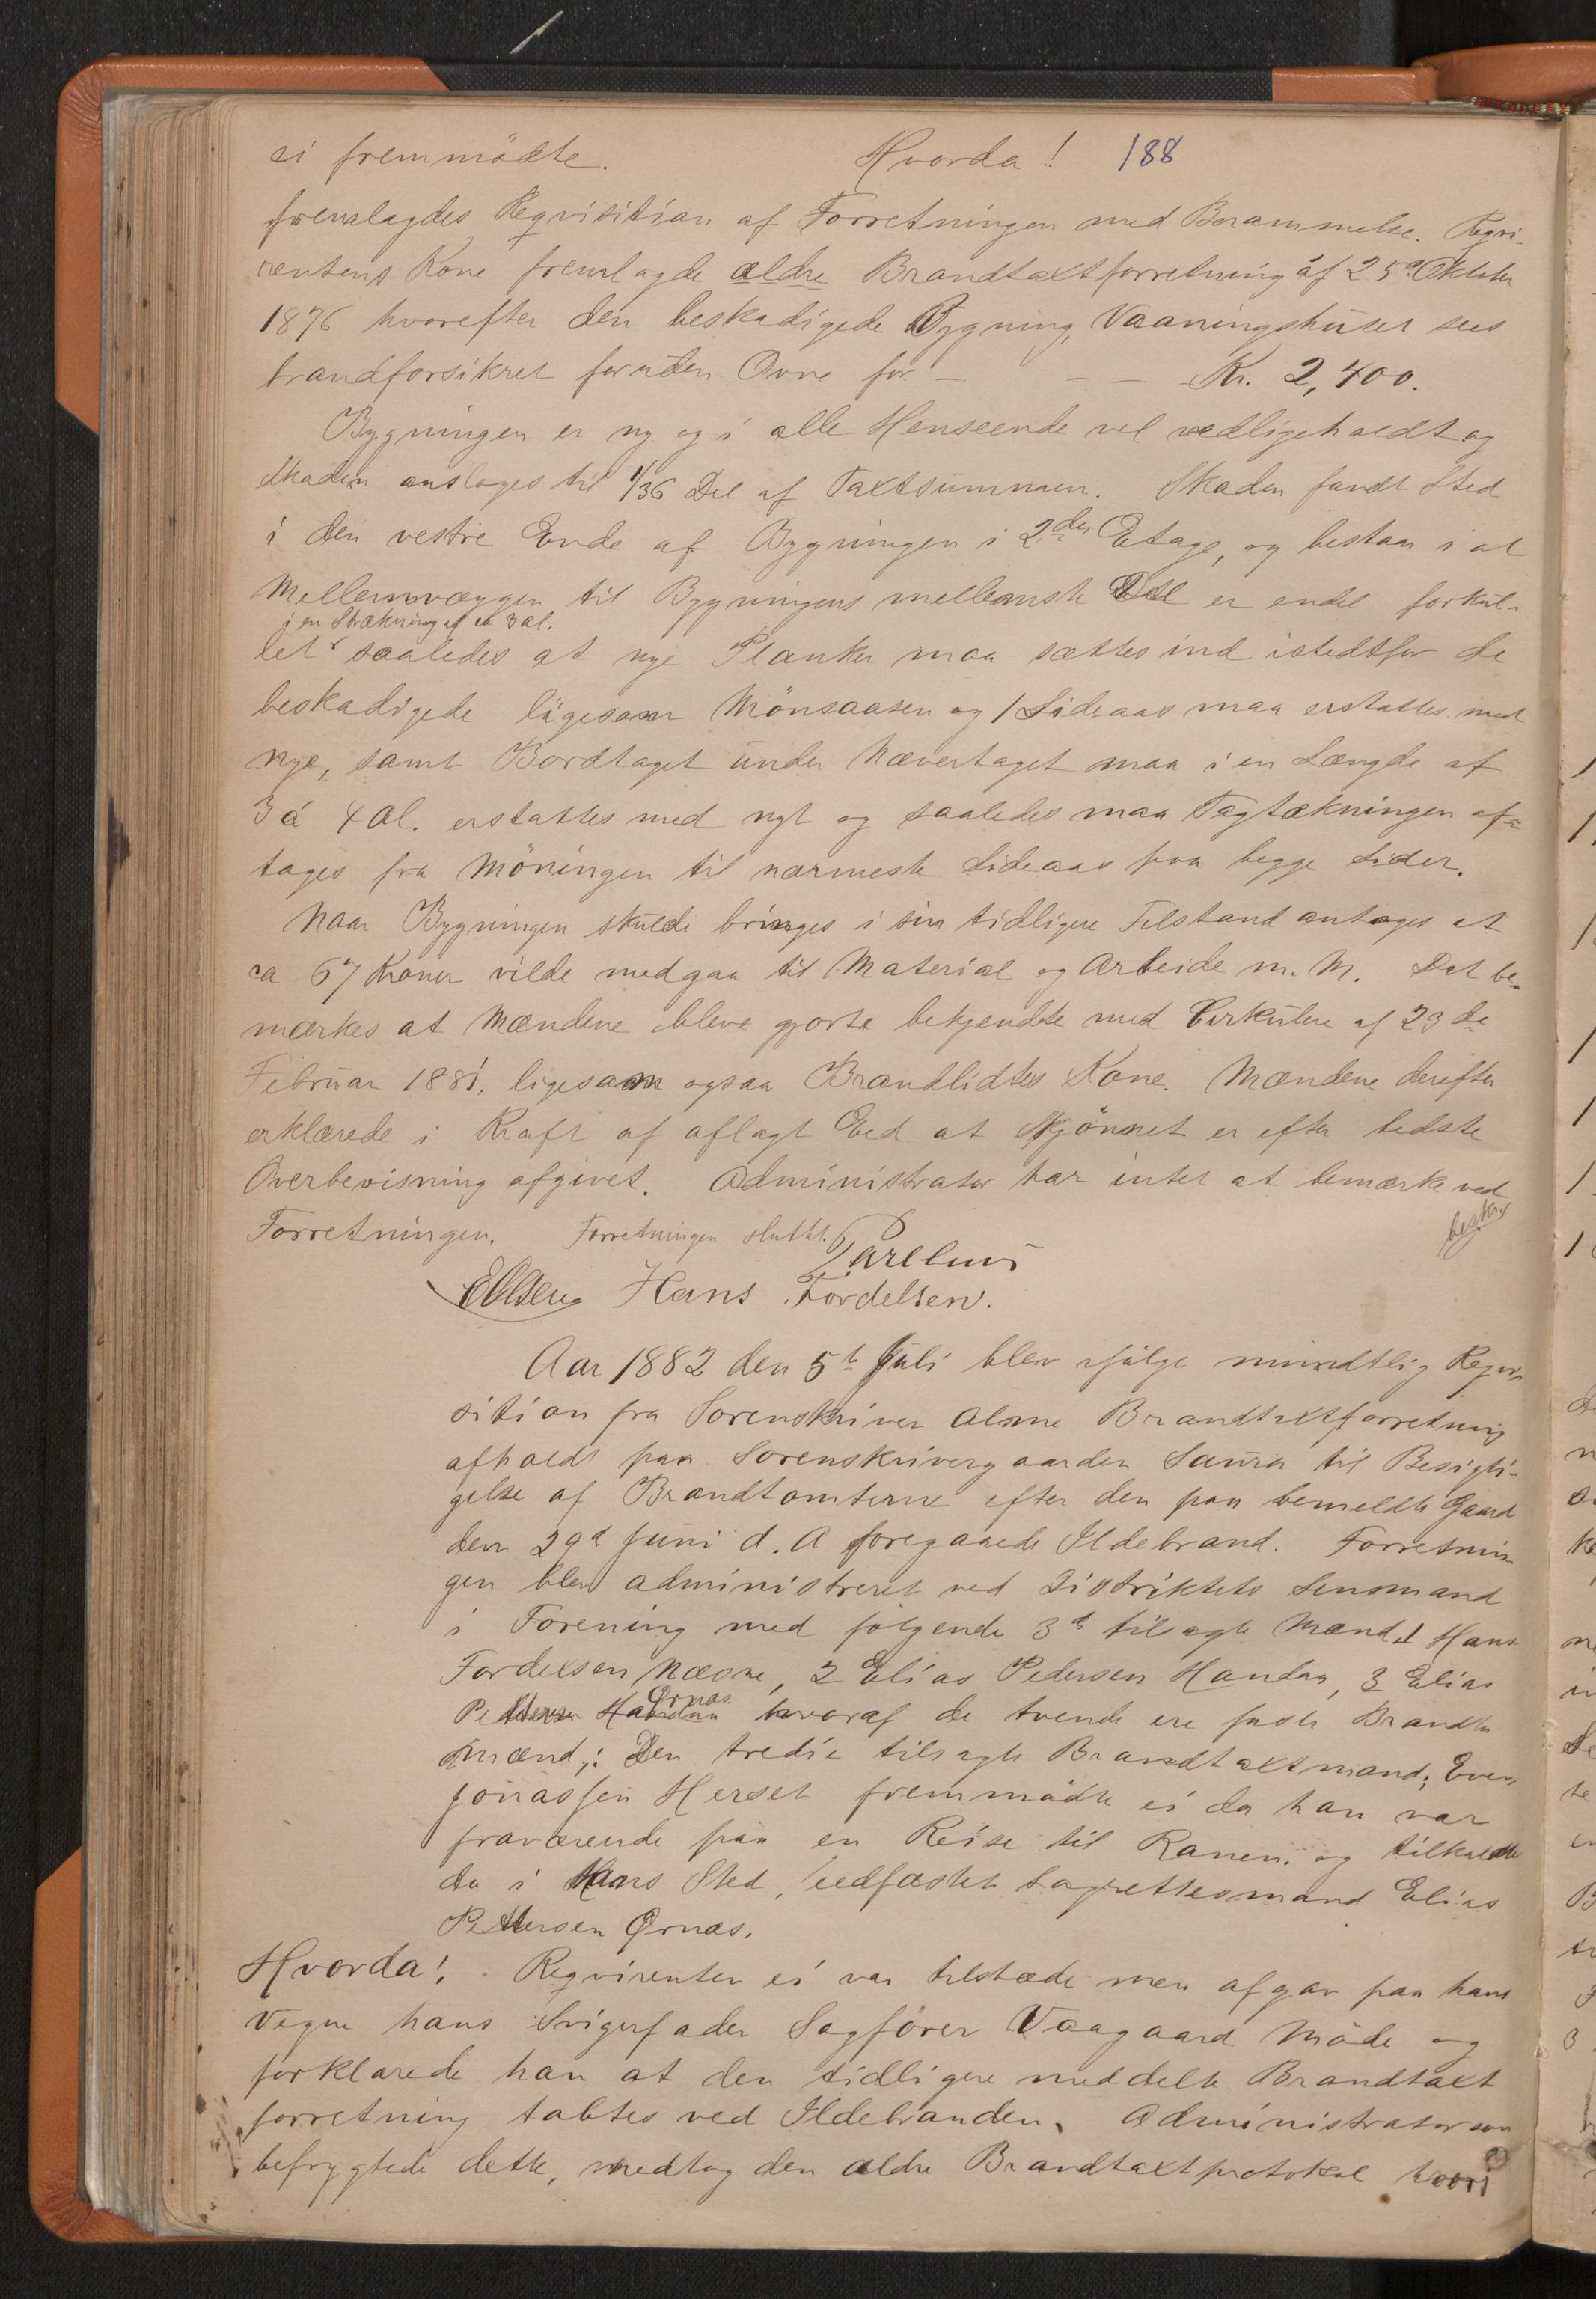 ei fremmödte. Hvorda! 188
fremlagdes Reqvisition af Forretningen med Berammelse. Reqvi-
rentens Kone fremlagde ældre Brandtaxtforretning af 25de Oktober
1876 hvorefter den beskadigede Bygning, Vaaningshuset sees
brandforsikret foruden Ovne for - - - Kr. 2,400.
Bygningen er ny og i alle Henseende vel vedligeholdt og
Skaden anslages til 1/36 Del af Taxtsummen. Skaden fandt Sted
i den vestre Ende af Bygningen i 2den Etage, og bestaar i at
Mellemvæggen til Bygningens mellemste Del er endel forkul-
i en Strækning af ca 3 al.
let saaledes at nye Planker maa sættes ind istedtfor de
beskadigede ligesom Mönsaasen og 1 Sideaas maa erstattes med
nye, samt Bordtaget under Nævertaget maa i en Længde af
3 á 4 Al. erstattes med nyt og saaledes maa Tagtækningen af-
tages fra Möningen til nærmeste Sideaas paa begge Sider.
Naar Bygningen skulde bringes i sin tidligere Tilstand antages at
ca 67 Kroner vilde medgaa til Material og Arbeide m. M. Det be-
mærkes at Mændene bleve gjorte bekjendte med Cirkulære af 23de
Februar 1881, ligesom ogsaa Brandlidtes Kone. Mændene derefter
erklærede i Kraft af aflagt Eed at Skjönnet er efter bedste
Overbevisning afgivet. Administrator har intet at bemærke ved
Forretningen. Forretningen sluttet.
Hans Tordelsen.
Aar 1882 den 5te Juli blev ifölge mundtlig Reqvi-
sition fra Sorenskriver Alme Brandtaxtforretning
afholdt paa Sorenskrivergaarden Saura til Besigti-
gelse af Brandtomterne efter den paa bemeldte Gaard
den 29d Juni d. A foregaaede Ildebrand. Forretnin-
gen blev administreret ved Distriktets Lensmand
i Forening med følgende 3de tilsagte Mænd, 1 Hans
Tordelsen Næsne, 2 Elias Pedersen Handan, 3 Elias
Ørnas
Pettersen Handan hvoraf de tvende ere faste Brandta
mænd,: Den tredie tilsagte Brandtaxtmand, Even
Jonassen Herset fremmödte ei da han var
fraværende paa en Reise til Ranen. og tilkaldte
da i Hans Sted, eedfæstet Lagrettesmand Elias
Pettersen Ørnas.
Hvorda! Reqvirenten ei var tilstæde men afgav paa hans
Vegne hans Svigerfader Sagförer Vaagaard Möde og
forklarede han at den tidligere meddelte Brandtaxt
forretning tabtes ved Ildebranden. Administrator som
befrygtede dette, medtog den ældre Brandtaxtprotokol hvori